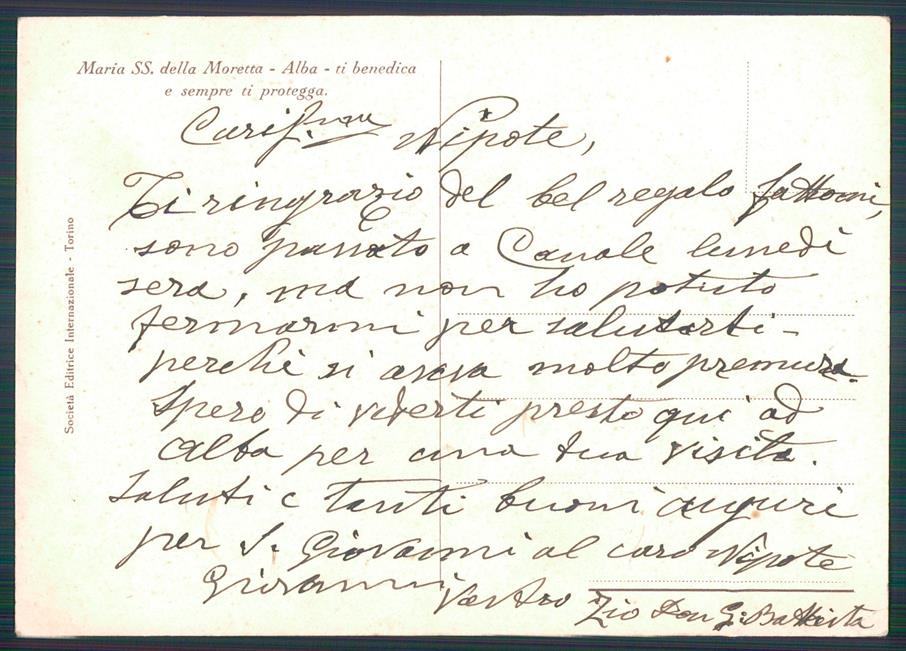 Maria SS. della Moretta - Alba - ti benedica
e sempre ti protegga.
Cariss.me Nipote,
Ti ringrazio del bel regalo fattomi,
sono passato a Canale lunedì
sera, ma non ho potuto
fermarmi per salutarti -
perchè si aveva molto premura.
Spero di vederti presto qui ad
Alba per una tua visita.
Saluti e tanti buoni auguri
per S. Giovanni al caro Nipote
Giovanni Vostro Zio Don G. Battista
Società Editrice Internazionale - Torino